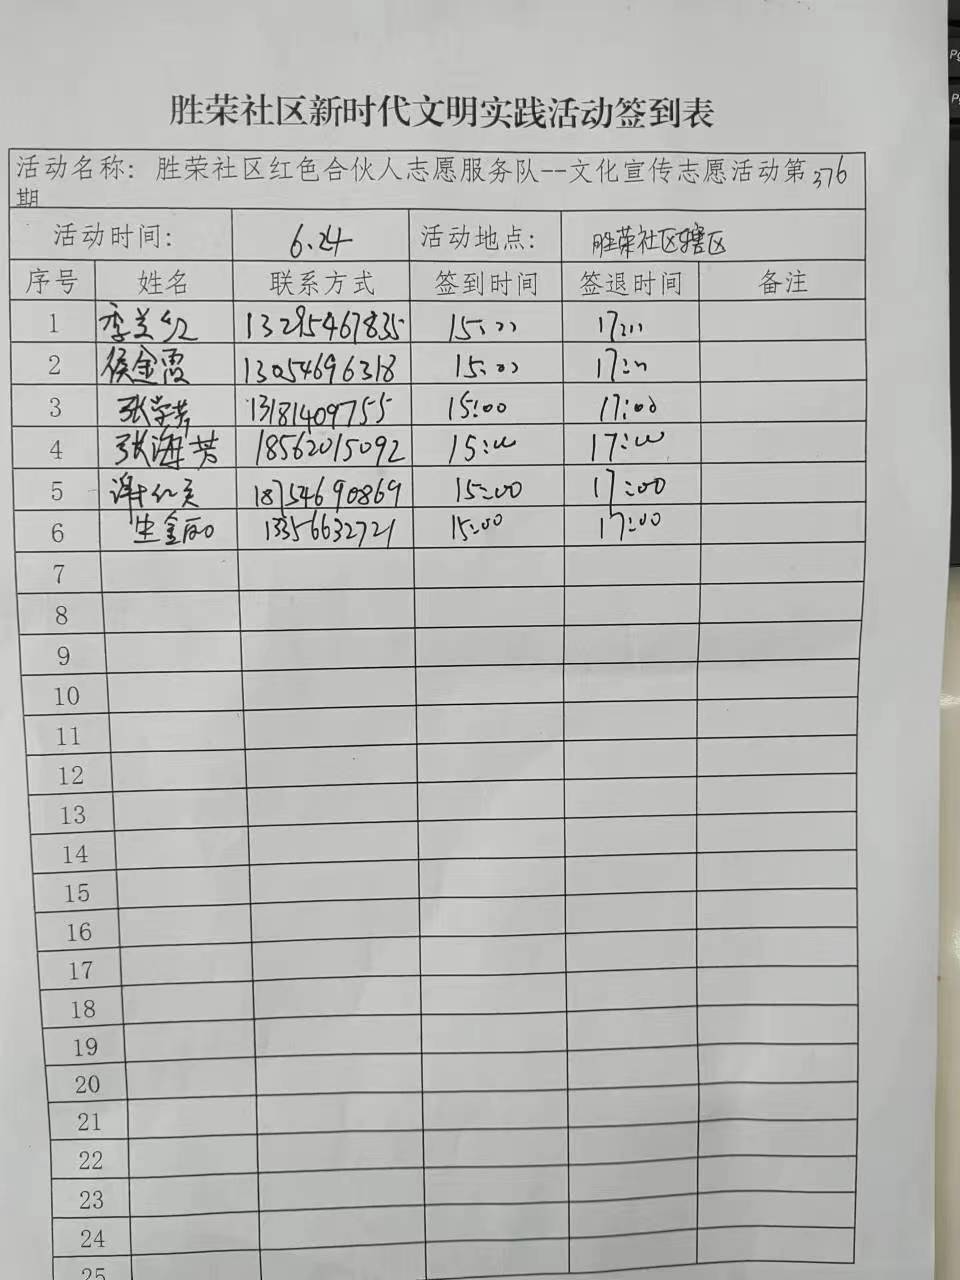 胜荣社区新时代文明实践活动签到表
活动名称：胜荣社区红色合伙人志愿服务队--文化宣传志愿活动第376
期
活动时间： 6.24 活动地点： 胜荣社区辖区
序号 姓名 联系方式 签到时间 签退时间 备注
1 李兰红 13295467835 15:00 17:00
2 侯金霞 13054696318 15:00 17:00
3 张学芳 13181409755 15:00 17:00
4 张海芳 18562015092 15:00 17:00
5 谢 18754690869 15:00 17:00
6 生金丽 13356632721 15:00 17:00
7
8
9
10
11
12
13
14
15
16
17
18
19
20
21
22
23
24
25